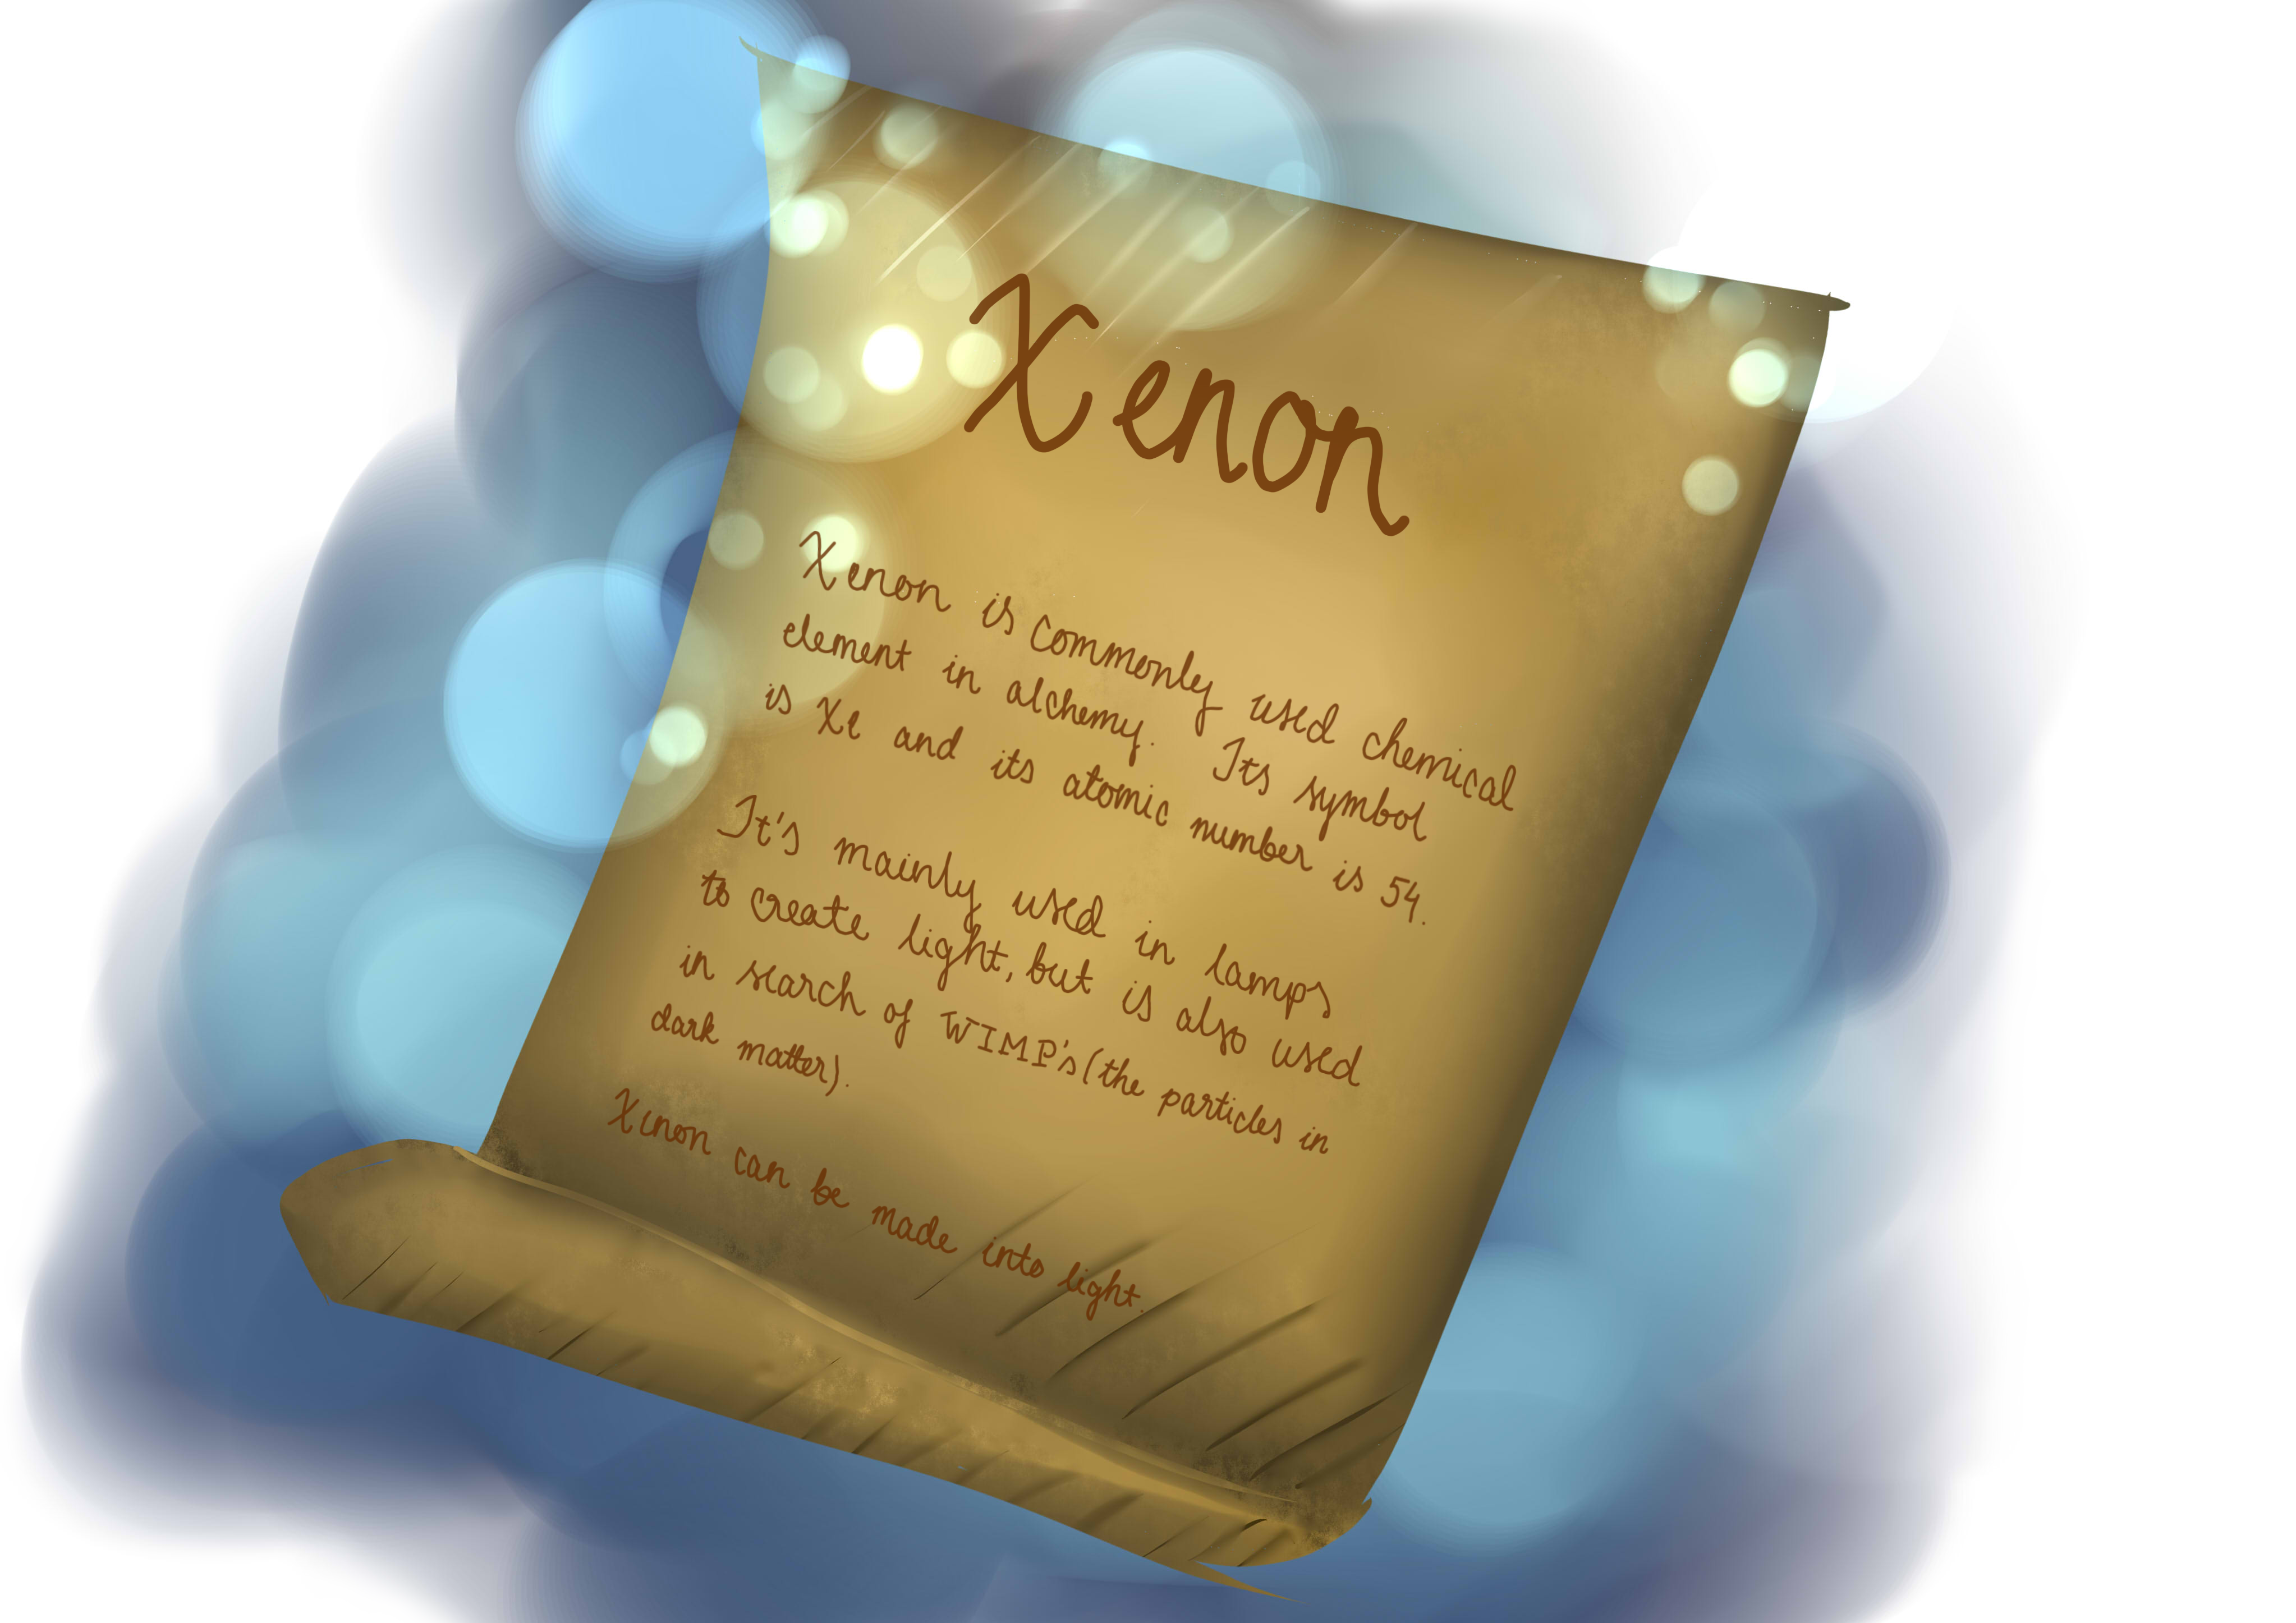 Xenon
Xenon is commonly used chemical
element in alchemy. Its symbol
is Xe and its atomic number is 54.
It's mainly used in lamps
to create light, but is also used
in search of WIMP's (the particles in
dark matter).
Xenon can be made into light.